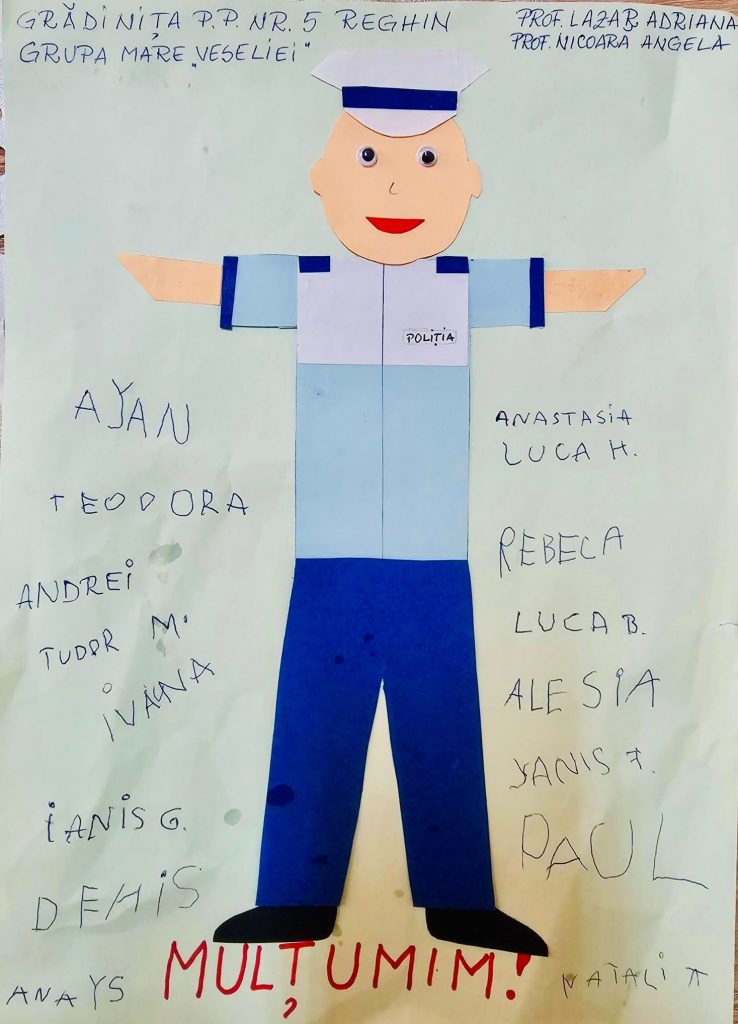 GRĂDINIȚA P.P. NR. 5 REGHIN
GRUPA MARE „VESELIEI"
PROF. LAZAR ADRIANA
PROF. NICOARA ANGELA
POLIȚIA
AYAN
TEODORA
ANDREI
TUDOR M.
IVANA
IANIS G.
DENIS
ANAYS
ANASTASIA
LUCA H.
REBECA
LUCA B.
ALESIA
YANIS F.
PAUL
NATALIA
MULȚUMIM!